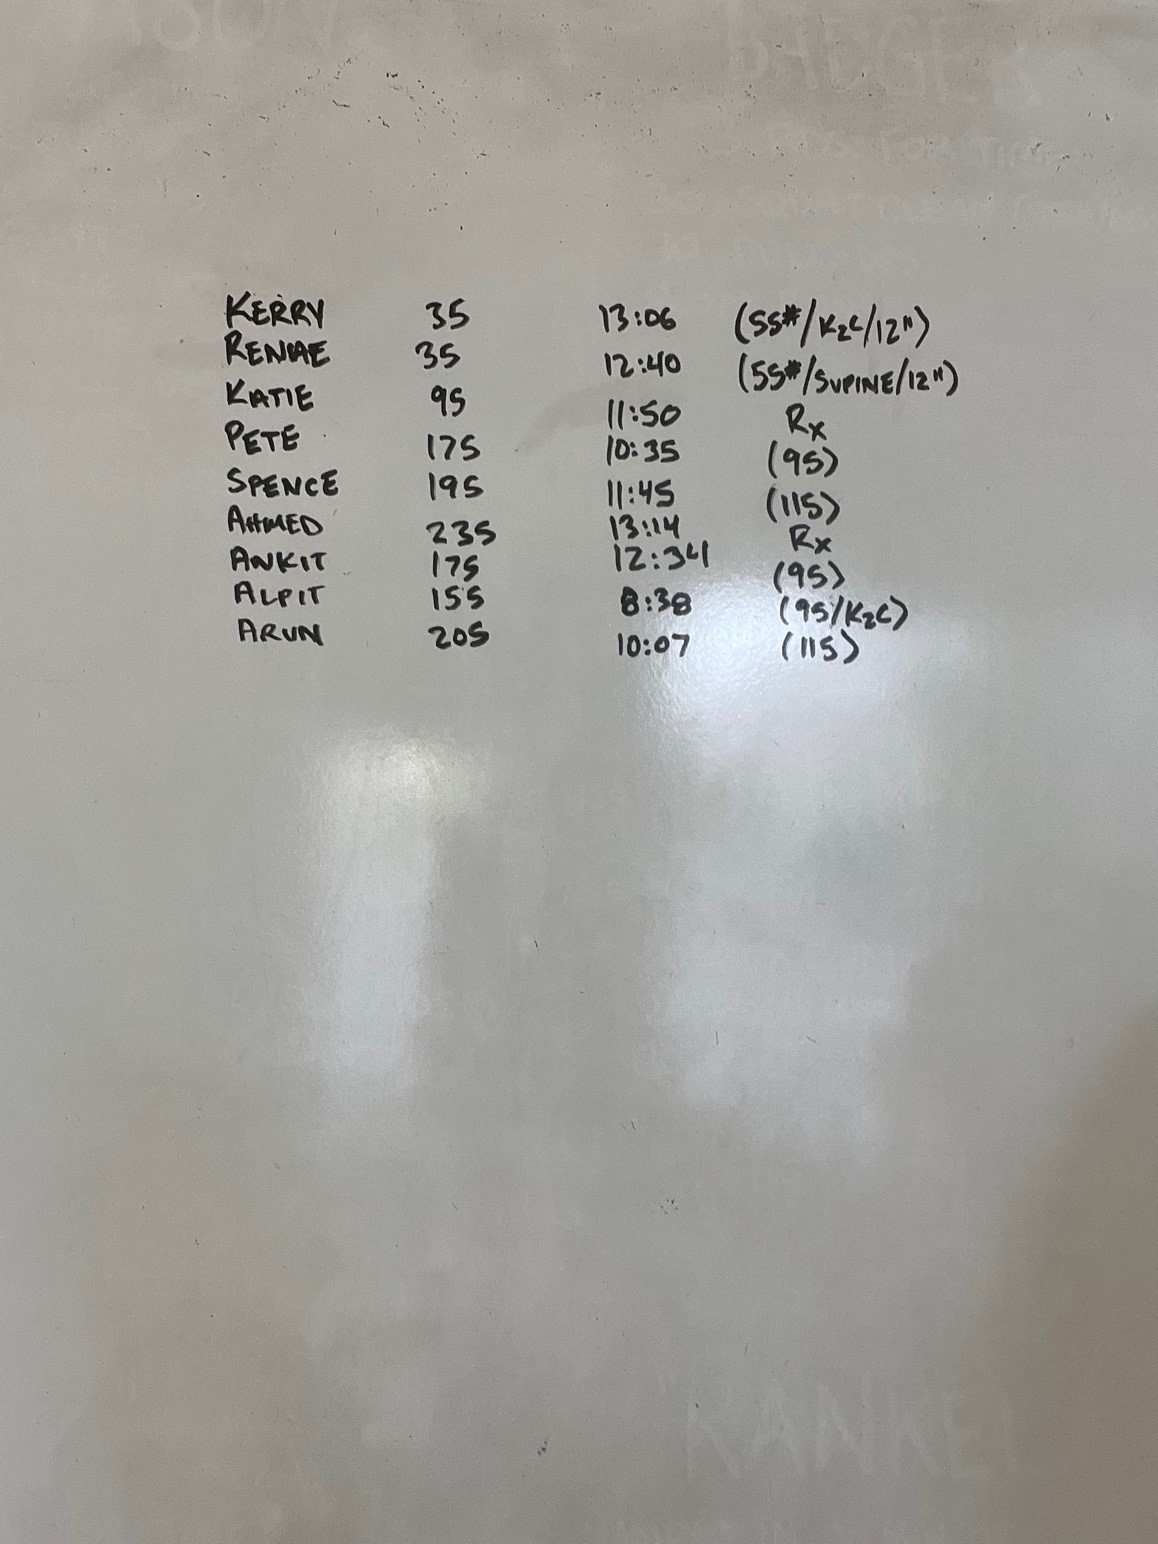 KERRY 35 13:06 (55#/K2C/12")
RENAE 35 12:40 (55#/SUPINE/12")
KATIE 95 11:50 Rx
PETE 175 10:35 (95)
SPENCE 195 11:45 (115)
AHMED 235 13:14 Rx
ANKIT 175 12:34 (95)
ALPIT 155 8:38 (95/K2C)
ARUN 205 10:07 (115)